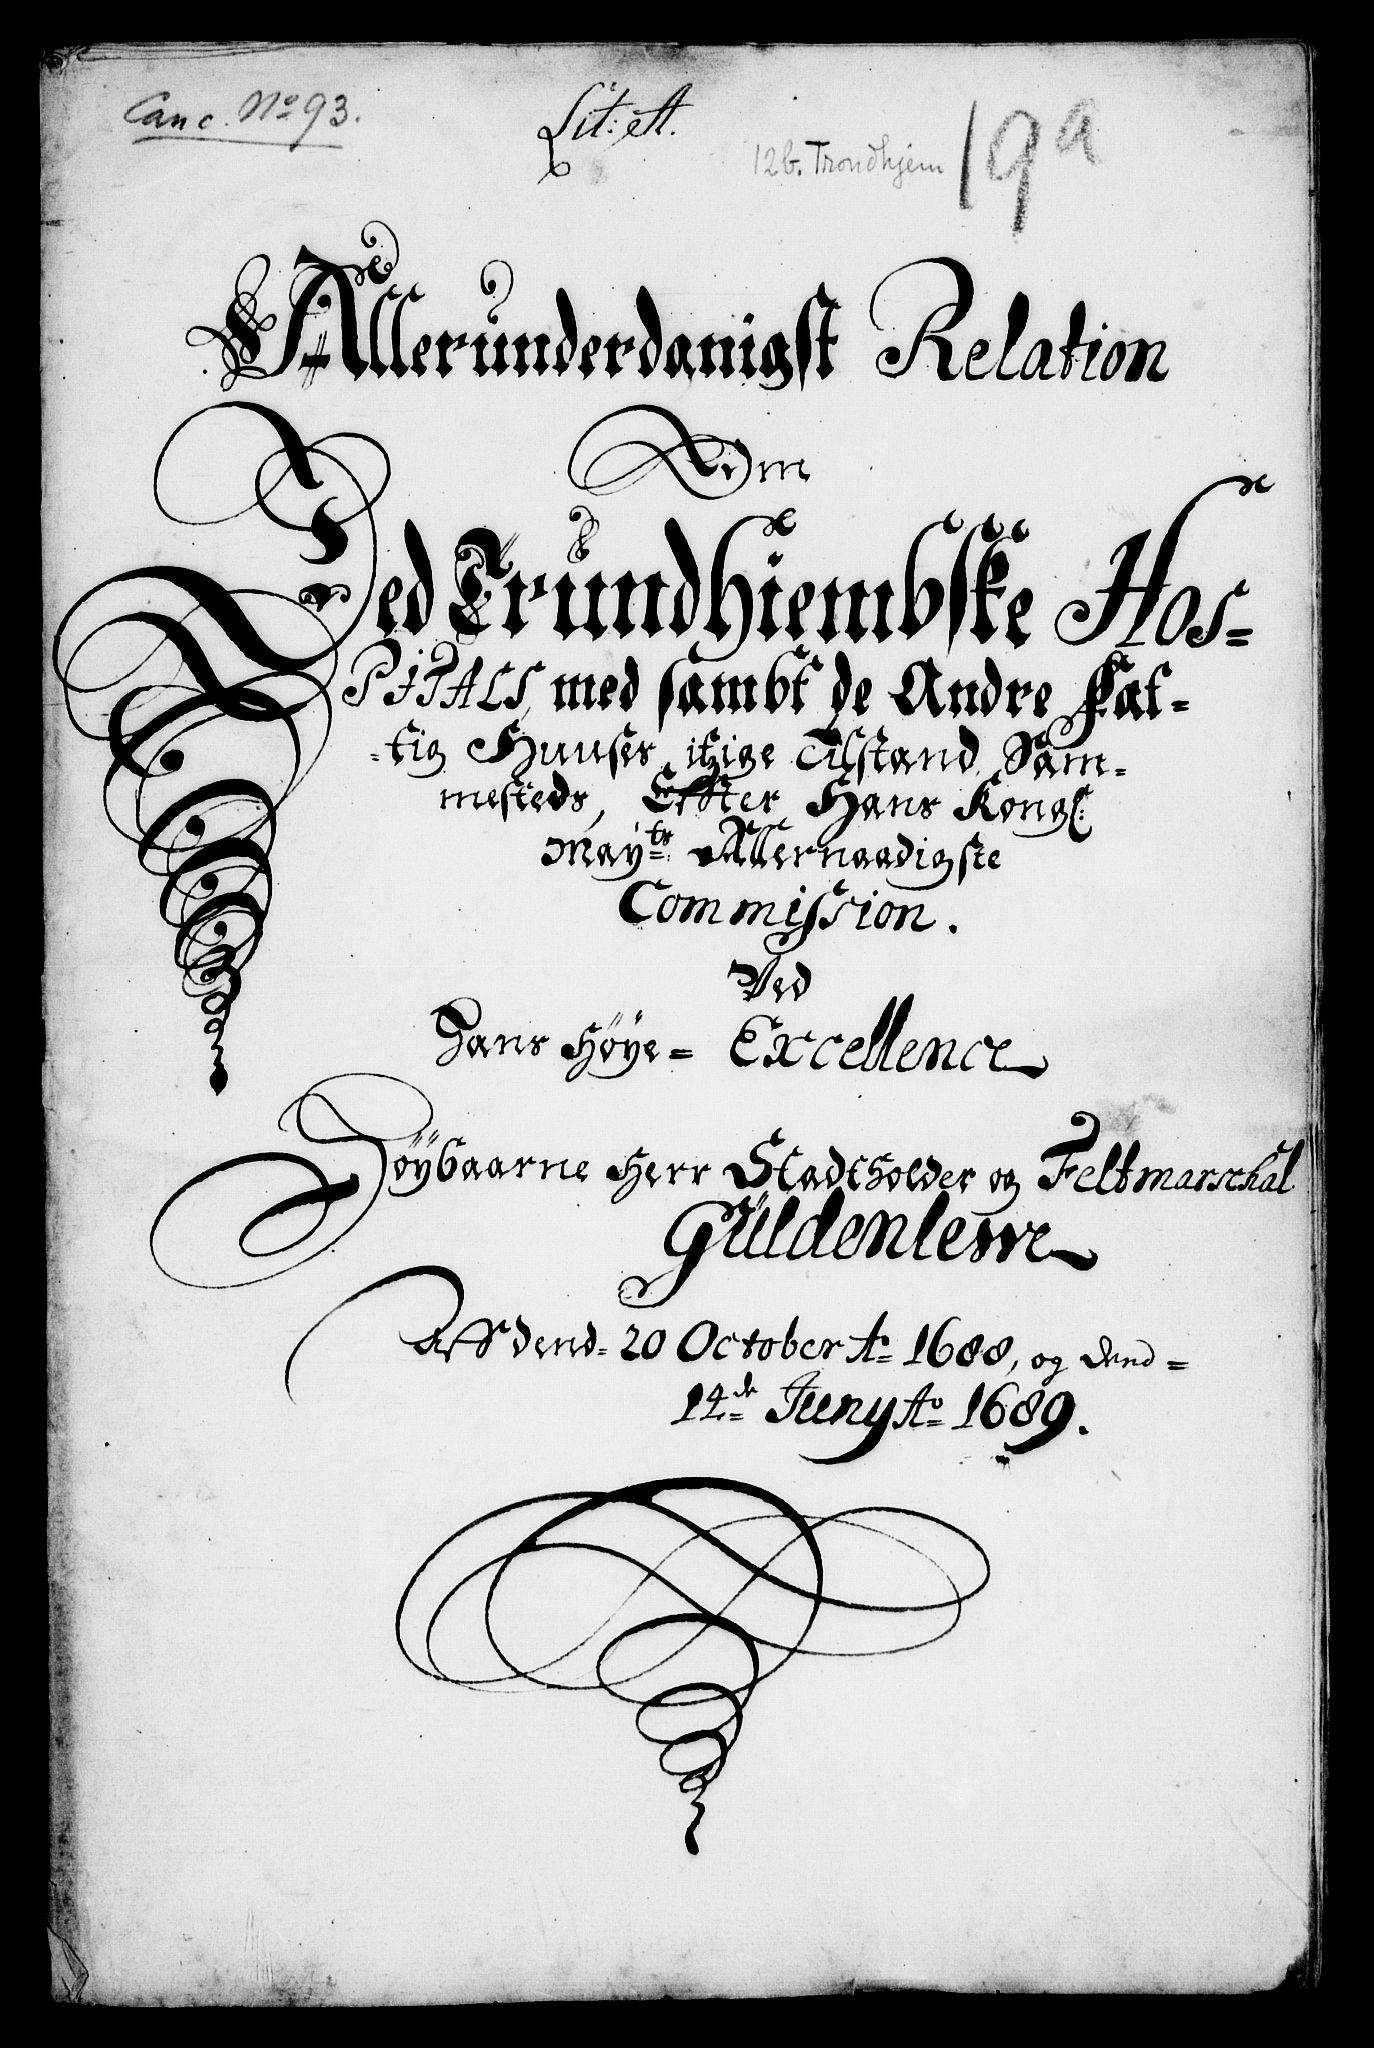 Canc. No 93.
Lit: A.
12b. Trondhjem
19a
Allerunderdanigst Relation
Om
Ded Trundhiembske Hos=
PITALS, med sambt de Andre Fat-
-tig Huuses itzige Tilstand Sam-
mesteds, Effter Hans Kongl:
Mayts: Allernaadigste
Commission.
Ved
Hans Høye= Excellence
Høÿbaarne Herr Stadtholder og Feltmarschal
Güldenlewe
Aff dend- 20 October Ao 1688, og dend=
14de Juny Ao 1689.